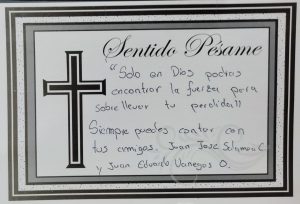 Sentido Pésame
"Solo en Dios podras
encontrar la fuerza para
sobrellevar tu perdida"
Siempre puedes contar con
tus amigos. Juan José Salamanca C.
y Juan Eduardo Vanegas O.